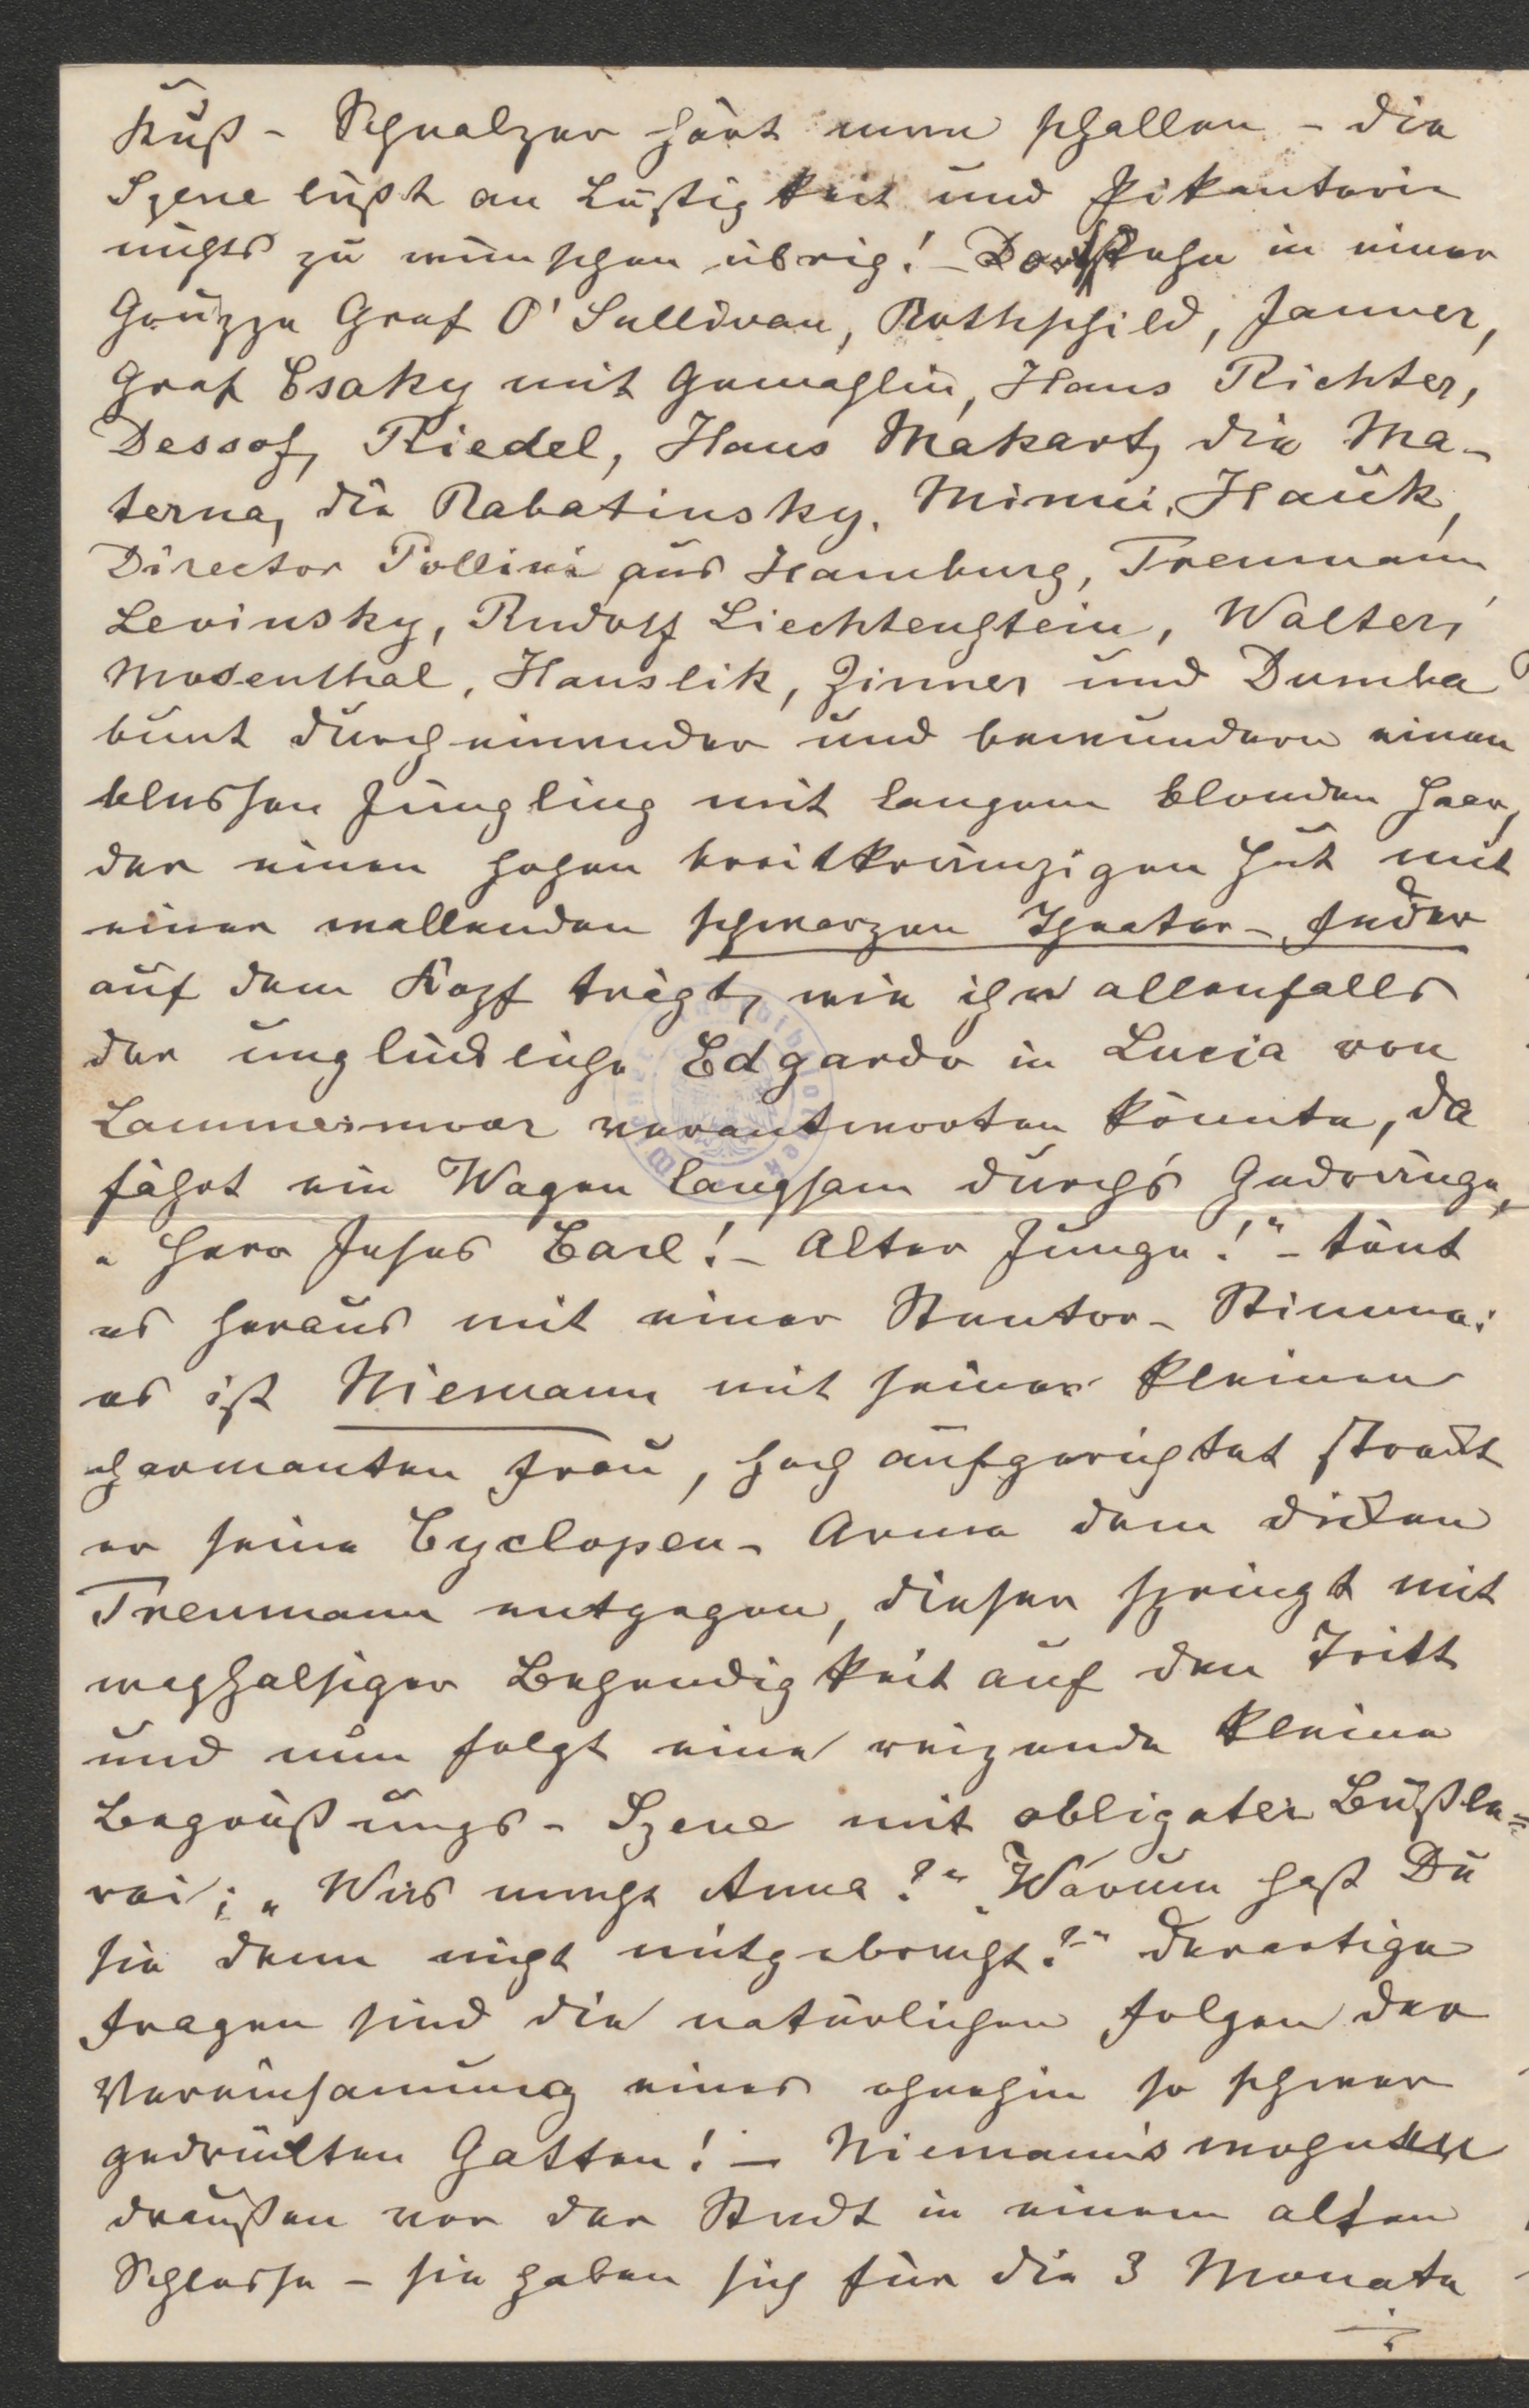 Kuß - Schnalzer hört man schallen - die
Szene läßt an Lustigkeit und Pikanterie
nichts zu wünschen übrig! - Dort stehn in einer
Gruppe Graf O'Sullivan, Rothschild, Jauner,
Graf Esaky mit Gemahlin, Hans Richter,
Dessof, Riedel, Hans Makart, die Ma-
terna, die Rabatinsky, Minni, Hauk,
Director Pollini aus Hamburg, Treumann,
Levinsky, Rudolf Liechtenstein, Walter,
Mosenthal, Hanslik, Zinner und Dumba
bunt durcheinander und bewundern einen
blassen Jüngling mit langem blonden Haar,
der einen hohen breitkrämpigen Hut mit
einer wallenden schwarzen Theater-Feder
auf dem Kopf trägt, wie ihn allenfalls
der unglückliche Edgardo in Lucia von
Lammermoor verantworten könnte, da
fährt ein Wagen langsam durch's Gedränge,
"Herr Jesus Carl! - Alter Junge!" - tönt
es heraus mit einer Stentor-Stimme:
es ist Niemann mit seiner kleinen
charmanten Frau, hoch aufgerichtet streckt
er seine Cyclopen-Arme dem dicken
Treumann entgegen, dieser springt mit
waghalsiger Behendigkeit auf den Tritt
und nun folgt eine reizende kleine
Begrüßungs-Szene mit obligater Bußle=
rei; "Was macht Anna?" "Warum hast Du
sie denn nicht mitgebracht?" derartige
Fragen sind die natürlichen Folgen der
Vereinsamung eines ohnehin so schwer
gedrückten Gatten! - Niemann's wohnen
draußen vor der Stadt in einem alten
Schlosse - sie haben sich für die 3 Monate
Wiener Stadtbibliothek